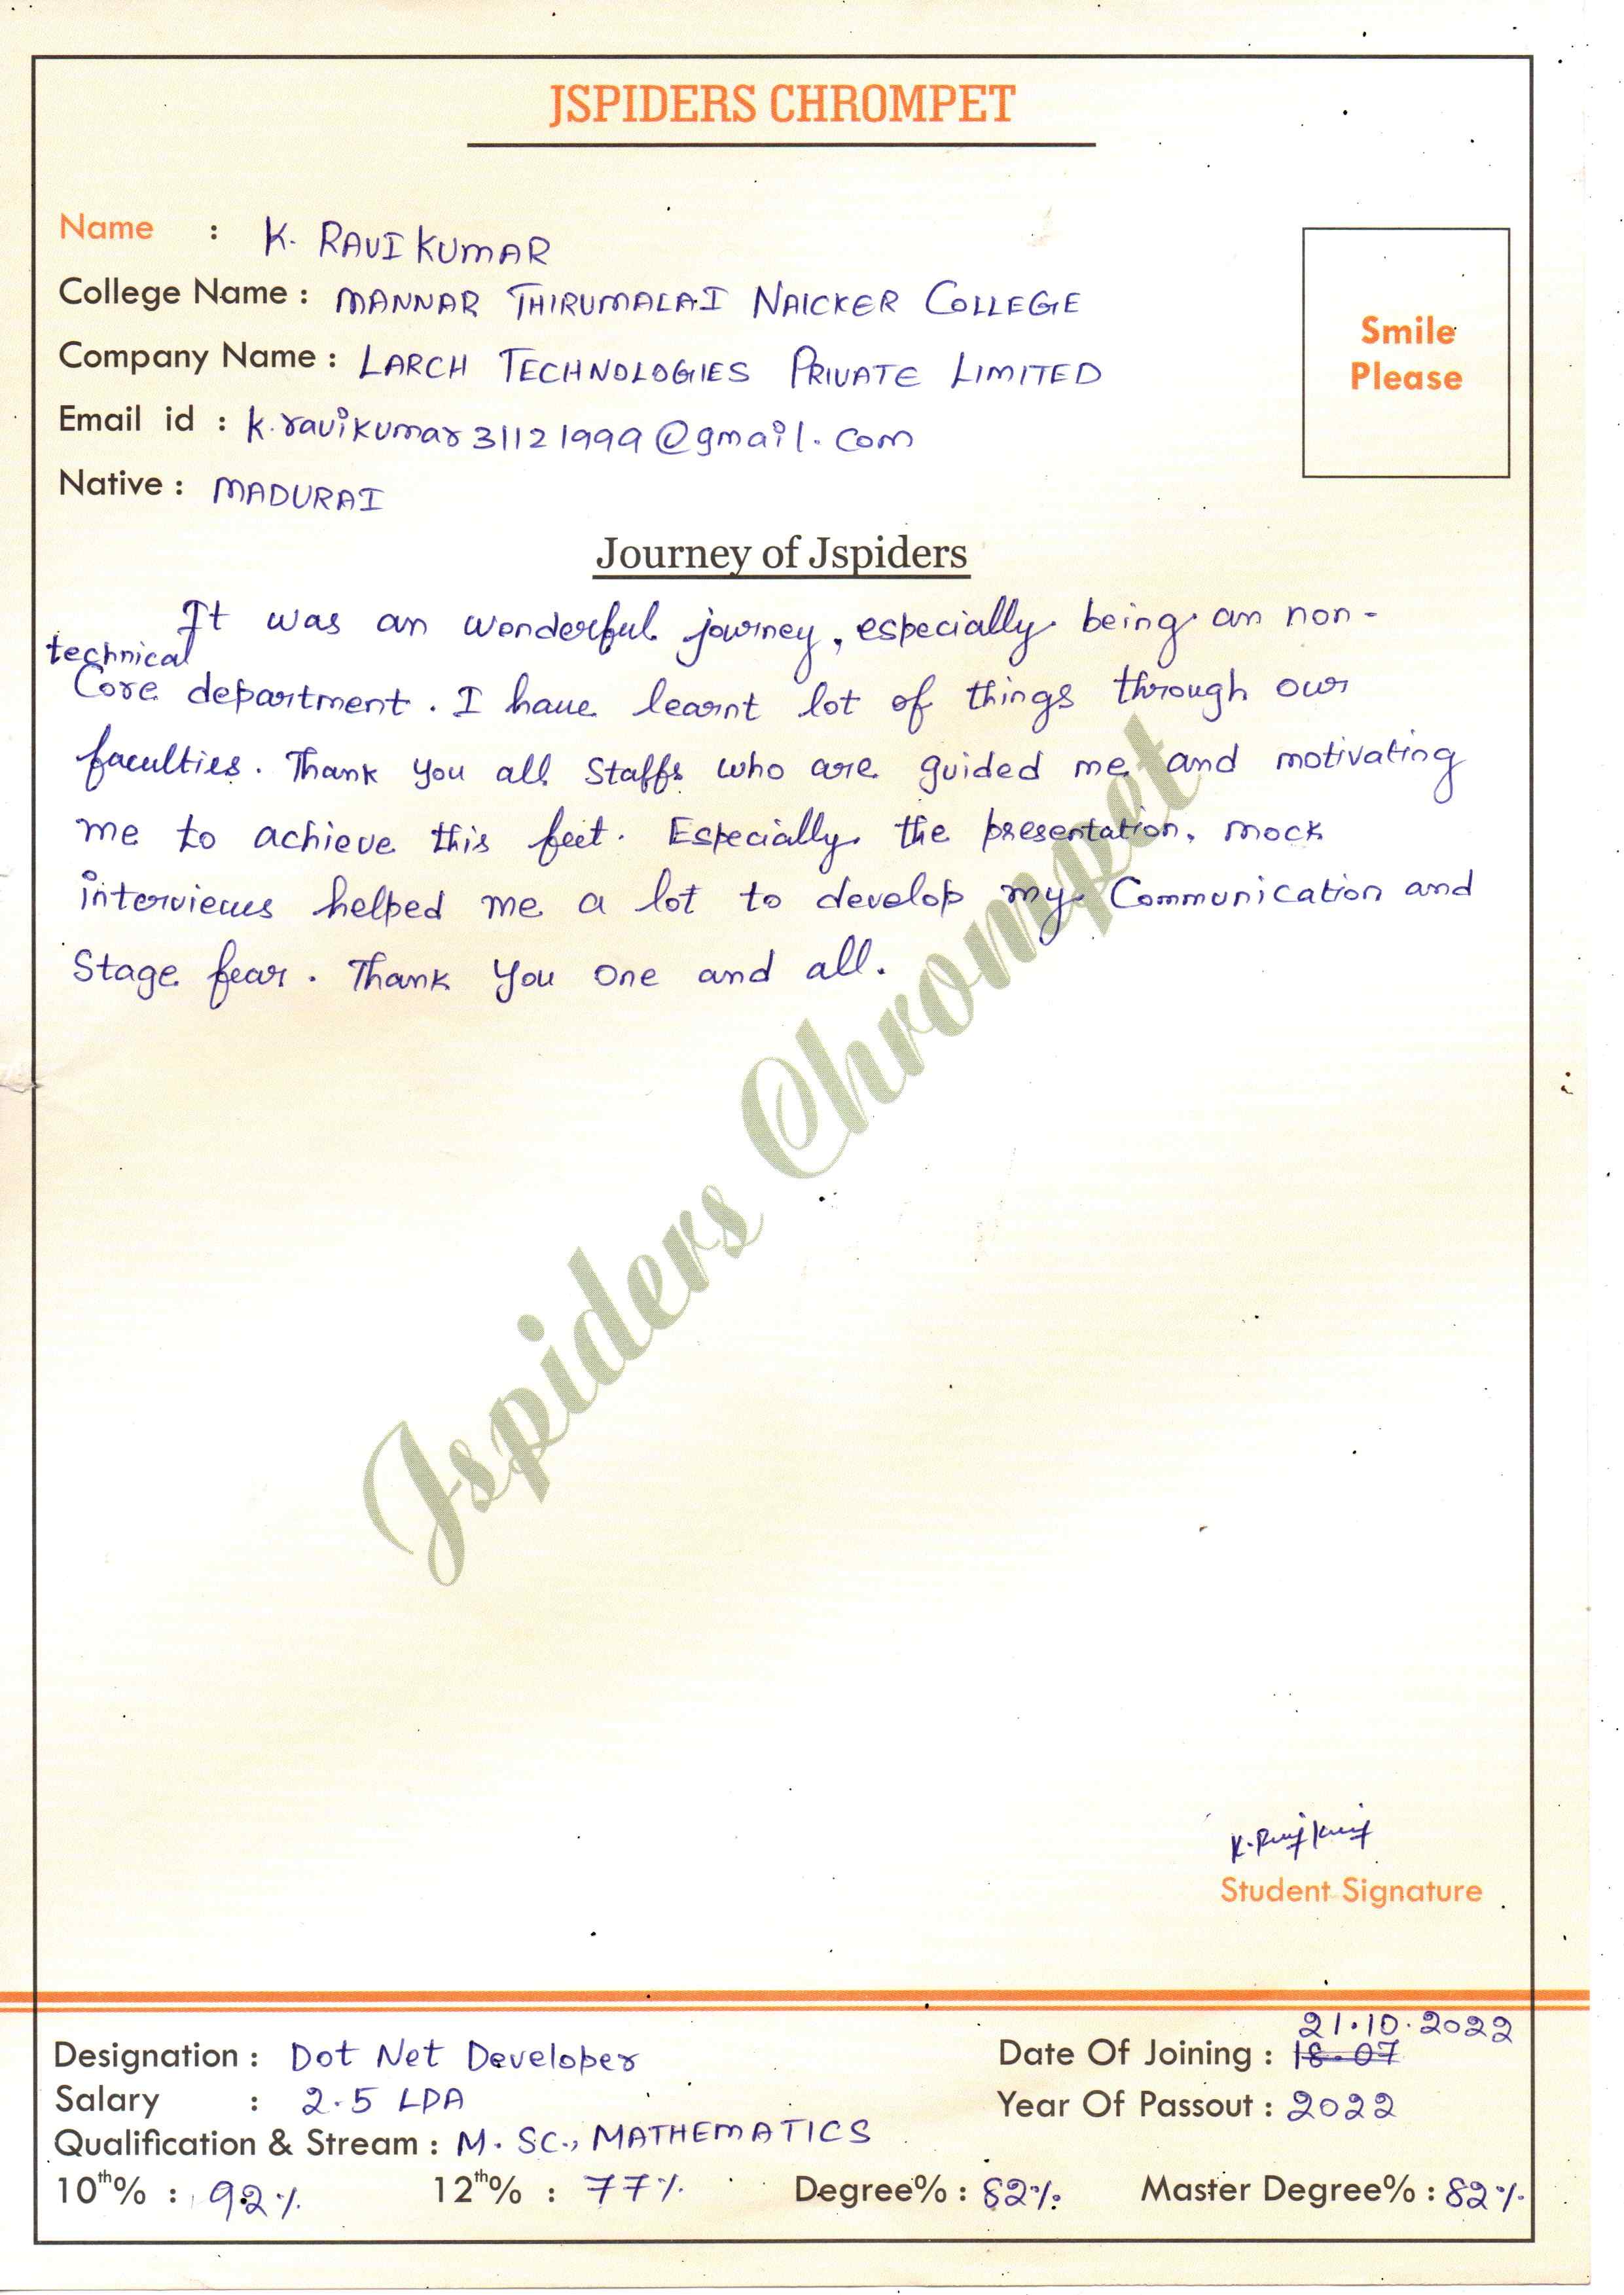 JSPIDERS CHROMPET
Name : K. RAVI KUMAR
College Name : MANNAR THIRUMALAI NAICKER COLLEGE
Company Name : LARCH TECHNOLOGIES PRIVATE LIMITED
Smile
Please
Email id : k.ravikumar31121999@gmail.com
Native : MADURAI
Journey of Jspiders
It was an wonderful journey, especially being an non-
technical
Core department. I have learnt lot of things through our
faculties. Thank you all Staffs who are guided me and motivating
me to achieve this feet. Especially the presentation, mock
interviews helped me a lot to develop my Communication and
Stage fear. Thank you one and all.
Jspiders Chrompet
K. Ravi Kumar
Student Signature
21.10.2022
Designation : Dot Net Developer Date Of Joining : 18-07
Salary : 2.5 LPA Year Of Passout : 2022
Qualification & Stream : M. SC., MATHEMATICS
10th% : 92% 12th% : 77% Degree% : 82% Master Degree% : 82%